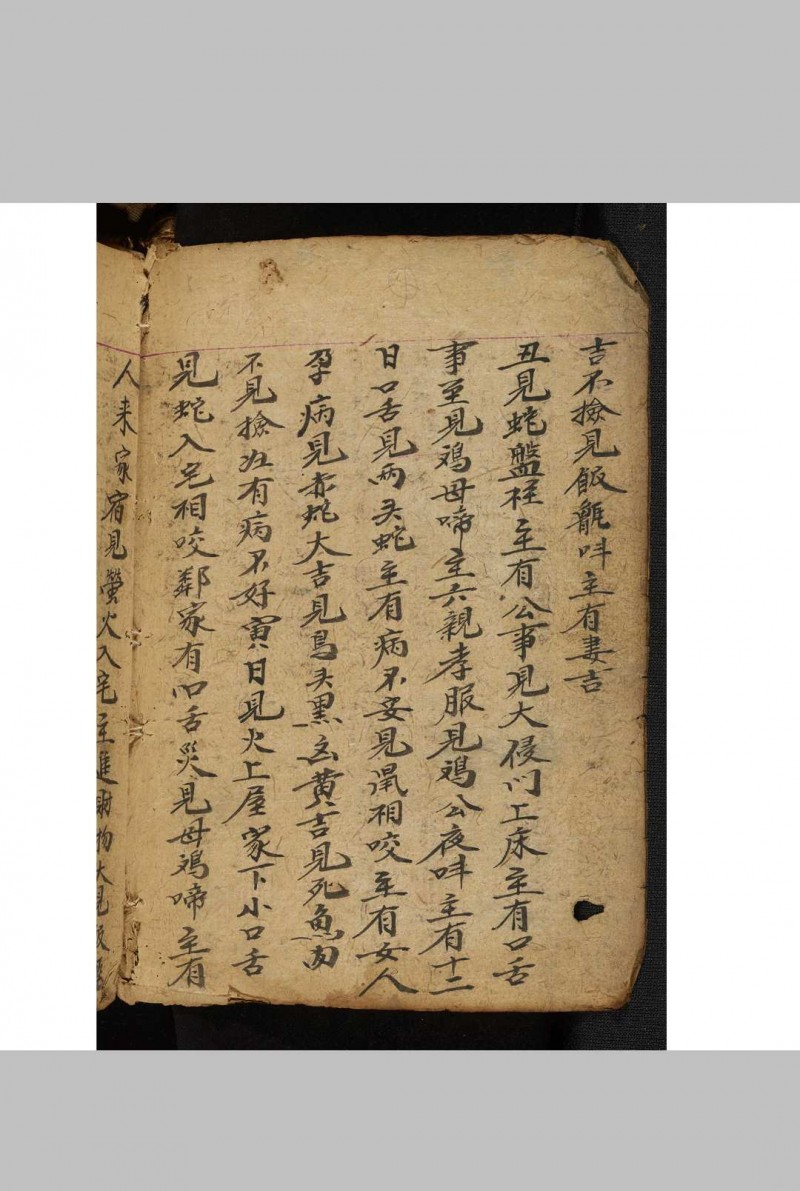 吉不撿見飯甑呌主有妻吉
丑見蛇盤柱主有公事見犬侵门上床主有口舌
事至見鴉母啼主六親孝服見鴉公夜呌主有十二
日口舌見两头蛇主有病不妥見鼠相咬主有女人
孕病見赤蛇大吉見鳥头黑凶黄吉見死魚肉
不見撿有病不好寅日見火上屋家下小口舌
見蛇入宅相咬鄰家有口舌災見母鴉啼主有
人来家宿見螢火入宅主進財物大見